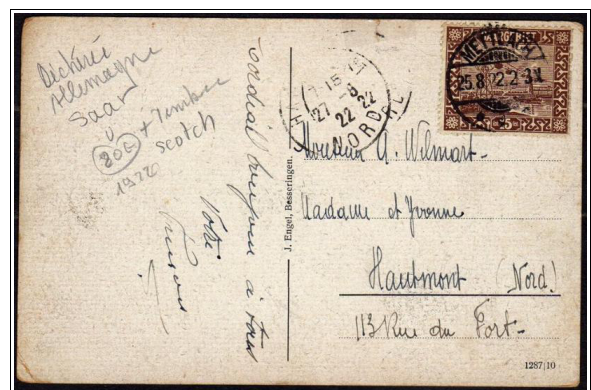 Déchirée
Allemagne
Saar
20E + Timbre
scotch
1922
Cordial bonjour à tous
Votre
J. Engel, Besseringen.
27-8
22 22
NORD
SAARGEBIET
METTLACH
25.8.22.2-3N
Monsieur A. Wilmart-
Madame et Yvonne
Hautmont (Nord.)
113 Rue du Fort-
1287|10